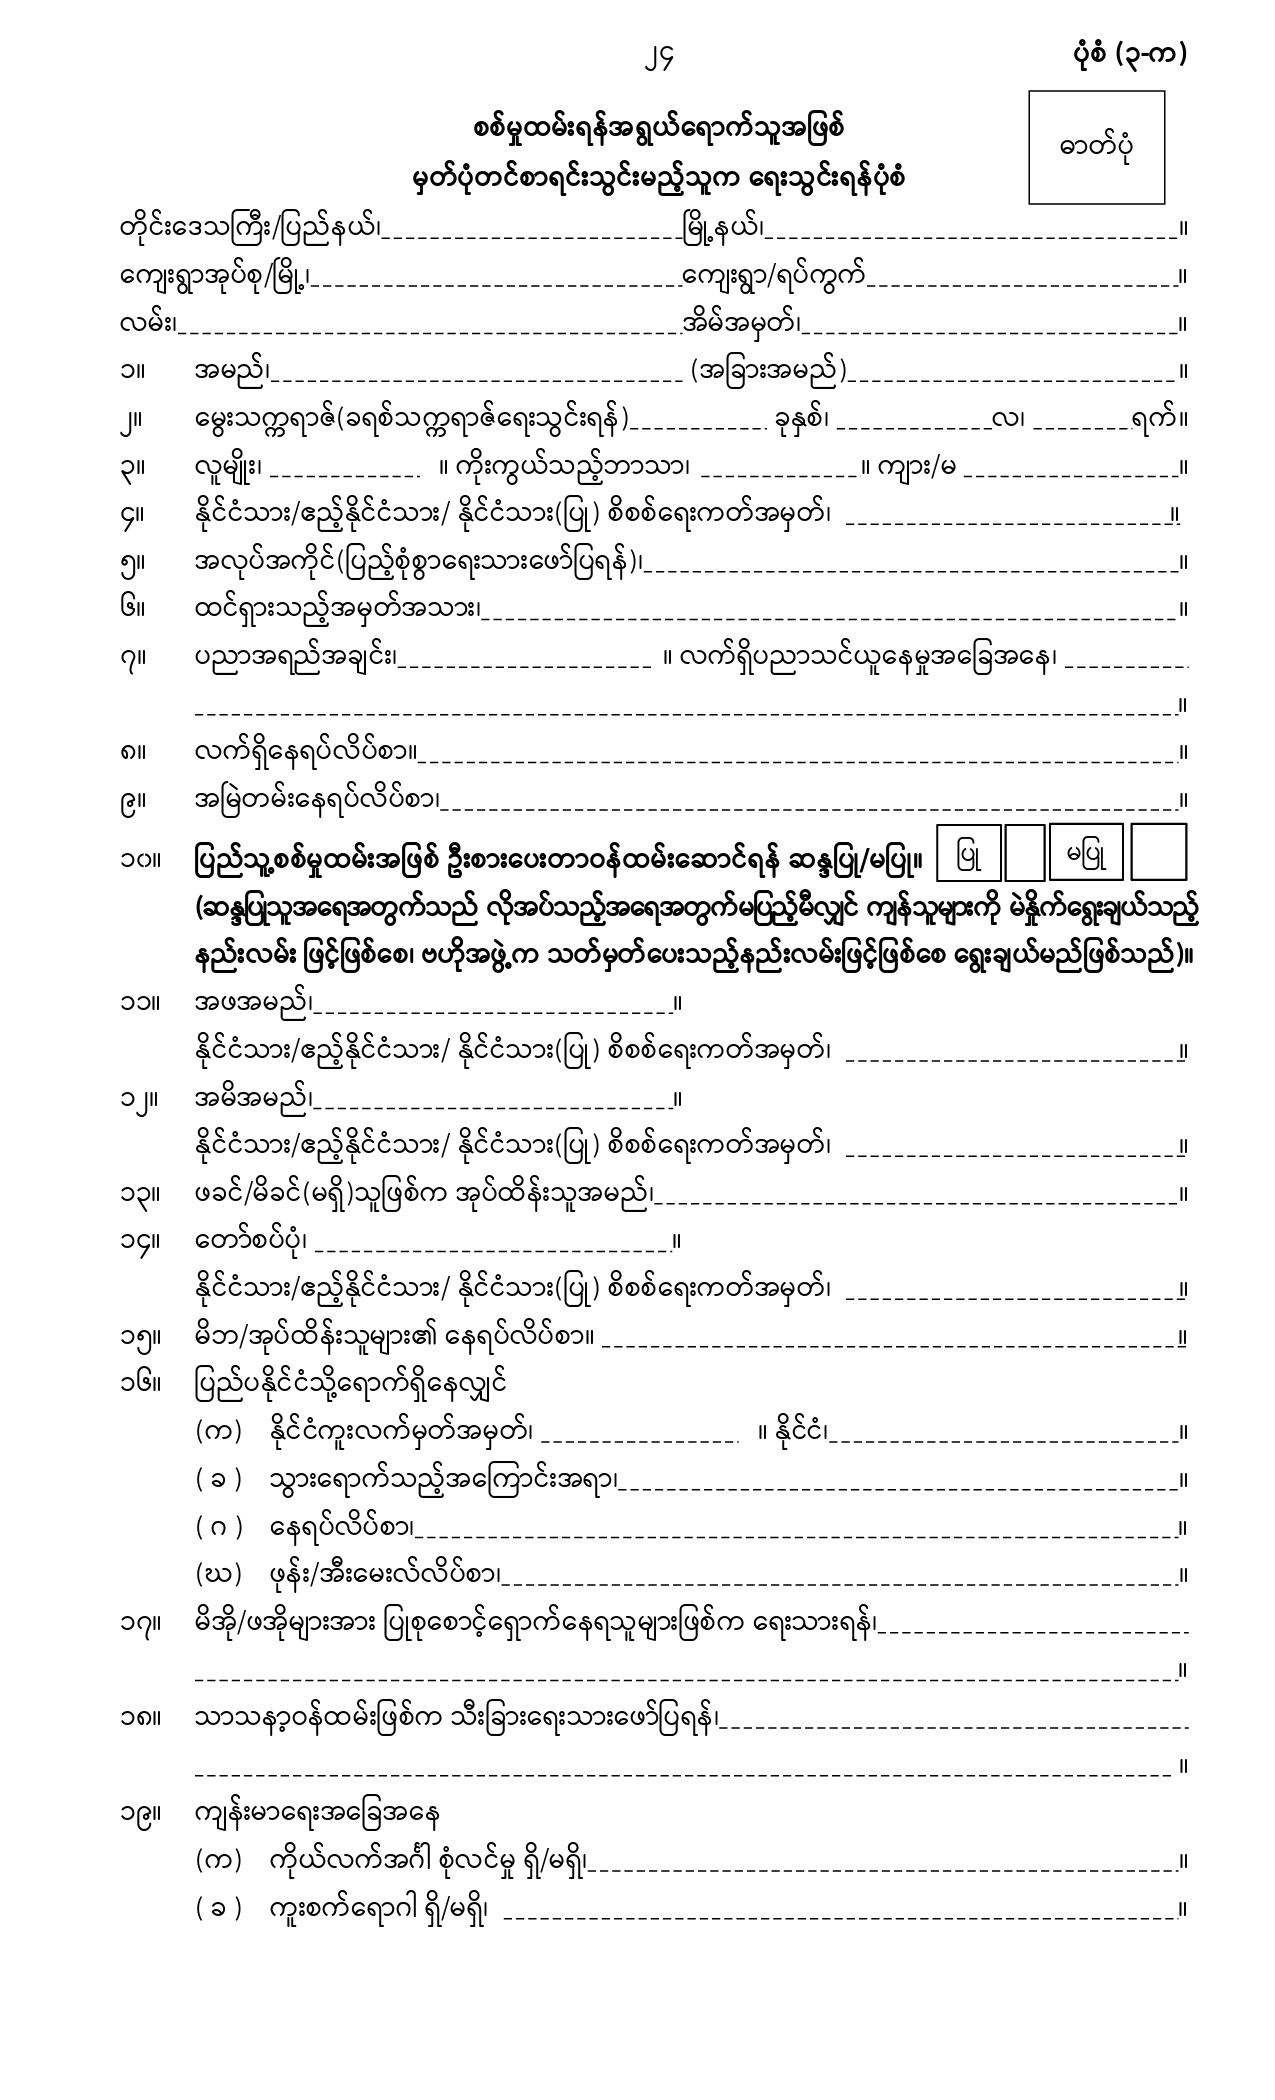 ၂၄
ပုံစံ (၃-က)
စစ်မှုထမ်းရန်အရွယ်ရောက်သူအဖြစ်
ဓာတ်ပုံ
မှတ်ပုံတင်စာရင်းသွင်းမည့်သူက ရေးသွင်းရန်ပုံစံ
တိုင်းဒေသကြီး/ပြည်နယ်၊_________________________မြို့နယ်၊__________________________________။
ကျေးရွာအုပ်စု/မြို့၊_______________________________ကျေးရွာ/ရပ်ကွက်__________________________။
လမ်း၊__________________________________________အိမ်အမှတ်၊_______________________________။
၁။ အမည်၊__________________________________ (အခြားအမည်)___________________________။
၂။ မွေးသက္ကရာဇ်(ခရစ်သက္ကရာဇ်ရေးသွင်းရန်)___________ ခုနှစ်၊ _____________လ၊ ________ရက်။
၃။ လူမျိုး၊ ____________ ။ ကိုးကွယ်သည့်ဘာသာ၊ _____________။ ကျား/မ __________________။
၄။ နိုင်ငံသား/ဧည့်နိုင်ငံသား/ နိုင်ငံသား(ပြု) စိစစ်ရေးကတ်အမှတ်၊ ___________________________။
၅။ အလုပ်အကိုင်(ပြည့်စုံစွာရေးသားဖော်ပြရန်)၊____________________________________________။
၆။ ထင်ရှားသည့်အမှတ်အသား၊_________________________________________________________။
၇။ ပညာအရည်အချင်း၊_____________________ ။ လက်ရှိပညာသင်ယူနေမှုအခြေအနေ၊ __________
_________________________________________________________________________________။
၈။ လက်ရှိနေရပ်လိပ်စာ။_______________________________________________________________။
၉။ အမြဲတမ်းနေရပ်လိပ်စာ၊_____________________________________________________________။
၁၀။ ပြည်သူ့စစ်မှုထမ်းအဖြစ် ဦးစားပေးတာဝန်ထမ်းဆောင်ရန် ဆန္ဒပြု/မပြု။ ပြု မပြု
(ဆန္ဒပြုသူအရေအတွက်သည် လိုအပ်သည့်အရေအတွက်မပြည့်မီလျှင် ကျန်သူများကို မဲနှိုက်ရွေးချယ်သည့်
နည်းလမ်း ဖြင့်ဖြစ်စေ၊ ဗဟိုအဖွဲ့က သတ်မှတ်ပေးသည့်နည်းလမ်းဖြင့်ဖြစ်စေ ရွေးချယ်မည်ဖြစ်သည်)။
၁၁။ အဖအမည်၊______________________________။
နိုင်ငံသား/ဧည့်နိုင်ငံသား/ နိုင်ငံသား(ပြု) စိစစ်ရေးကတ်အမှတ်၊ ____________________________။
၁၂။ အမိအမည်၊______________________________။
နိုင်ငံသား/ဧည့်နိုင်ငံသား/ နိုင်ငံသား(ပြု) စိစစ်ရေးကတ်အမှတ်၊ ____________________________။
၁၃။ ဖခင်/မိခင်(မရှိ)သူဖြစ်က အုပ်ထိန်းသူအမည်၊___________________________________________။
၁၄။ တော်စပ်ပုံ၊ ______________________________။
နိုင်ငံသား/ဧည့်နိုင်ငံသား/ နိုင်ငံသား(ပြု) စိစစ်ရေးကတ်အမှတ်၊ ____________________________။
၁၅။ မိဘ/အုပ်ထိန်းသူများ၏ နေရပ်လိပ်စာ။ ________________________________________________။
၁၆။ ပြည်ပနိုင်ငံသို့ရောက်ရှိနေလျှင်
(က) နိုင်ငံကူးလက်မှတ်အမှတ်၊ ________________ ။ နိုင်ငံ၊_____________________________။
( ခ ) သွားရောက်သည့်အကြောင်းအရာ၊______________________________________________။
( ဂ ) နေရပ်လိပ်စာ၊_______________________________________________________________။
(ဃ) ဖုန်း/အီးမေးလ်လိပ်စာ၊________________________________________________________။
၁၇။ မိအို/ဖအိုများအား ပြုစုစောင့်ရှောက်နေရသူများဖြစ်က ရေးသားရန်၊__________________________
_________________________________________________________________________________။
၁၈။ သာသနာ့ဝန်ထမ်းဖြစ်က သီးခြားရေးသားဖော်ပြရန်၊_______________________________________
________________________________________________________________________________ ။
၁၉။ ကျန်းမာရေးအခြေအနေ
(က) ကိုယ်လက်အင်္ဂါ စုံလင်မှု ရှိ/မရှိ၊_________________________________________________။
( ခ ) ကူးစက်ရောဂါ ရှိ/မရှိ၊ ________________________________________________________။